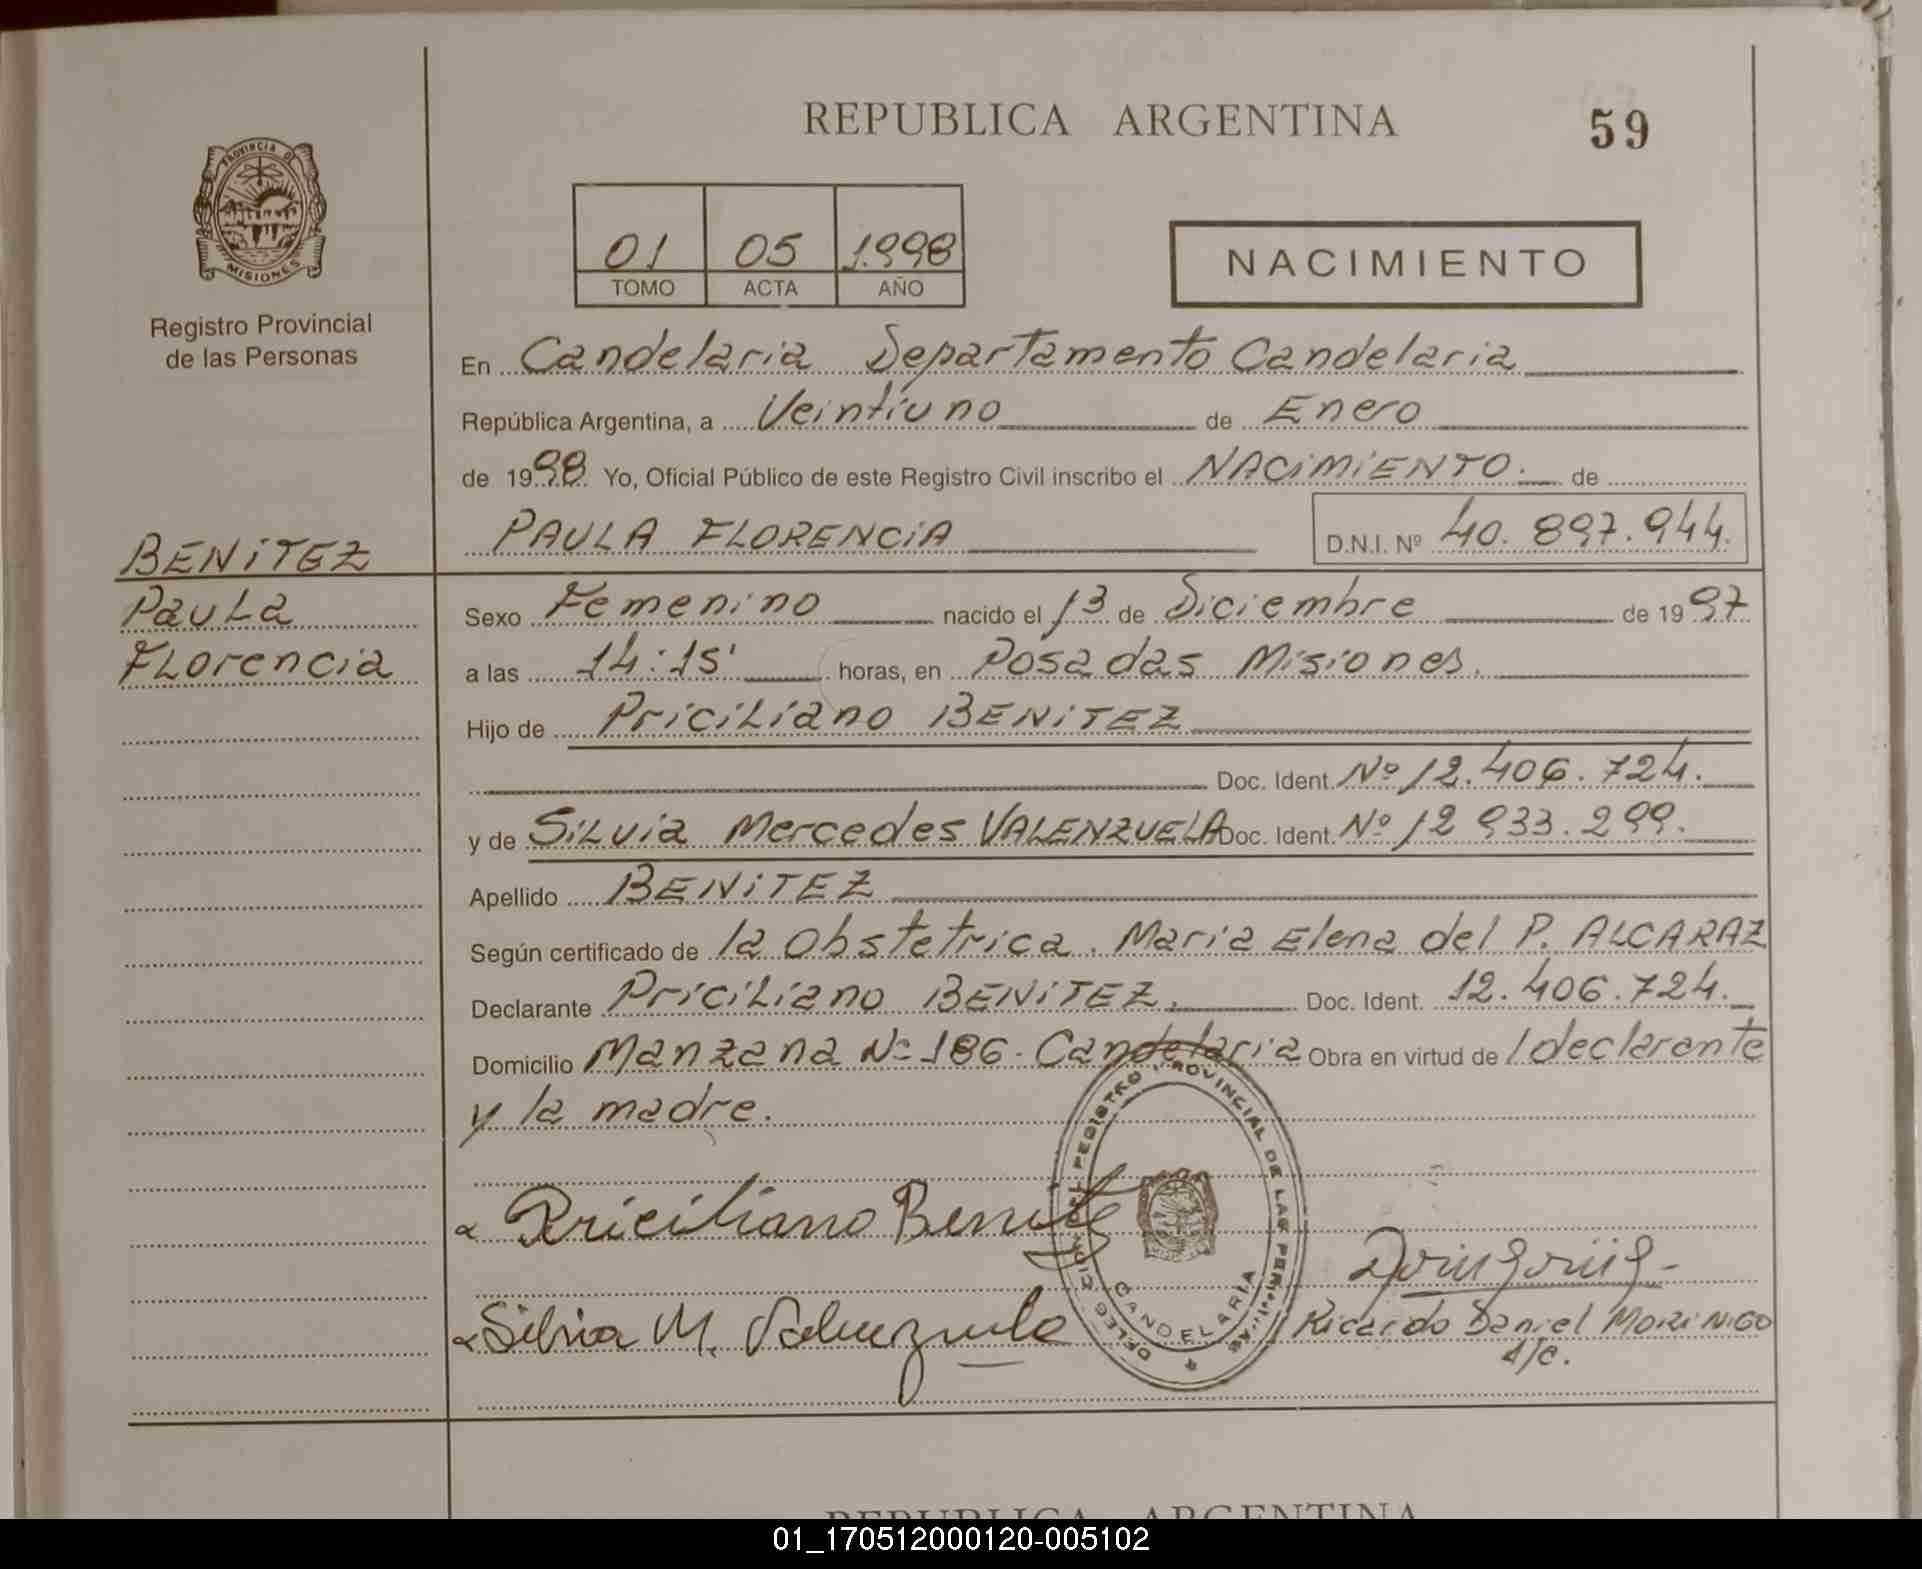 REPUBLICA ARGENTINA
59
PROVINCIA DE
MISIONES
Registro Provincial
de las Personas
01 05 1.998
TOMO ACTA AÑO
NACIMIENTO
En Candelaria Departamento Candelaria
República Argentina, a Veintiuno de Enero
de 1998 Yo, Oficial Público de este Registro Civil inscribo el NACIMIENTO. de
PAULA FLORENCIA D.N.I. Nº 40.897.944.
BENITEZ
Paula
Florencia
Sexo Femenino nacido el 13 de Diciembre de 1997
a las 14:15' horas, en Posadas Misiones.
Hijo de Priciliano BENITEZ
Doc. Ident. Nº 12.406.724.
y de Silvia Mercedes VALENZUELA Doc. Ident. Nº 12 933.299.
Apellido BENITEZ
Según certificado de la obstetrica. Maria Elena del P. ALCARAZ
Declarante Priciliano BENITEZ. Doc. Ident. 12.406.724.
Domicilio Manzana Nº 186. Candelaria Obra en virtud de l declarante
y la madre.
Priciliano Benitez
Silvia M. Valenzuela
DELEGACION DEL REGISTRO PROVINCIAL DE LAS PERSONAS
CANDELARIA
Ricardo Daniel MORINIGO
REPUBLICA ARGENTINA
01_170512000120-005102